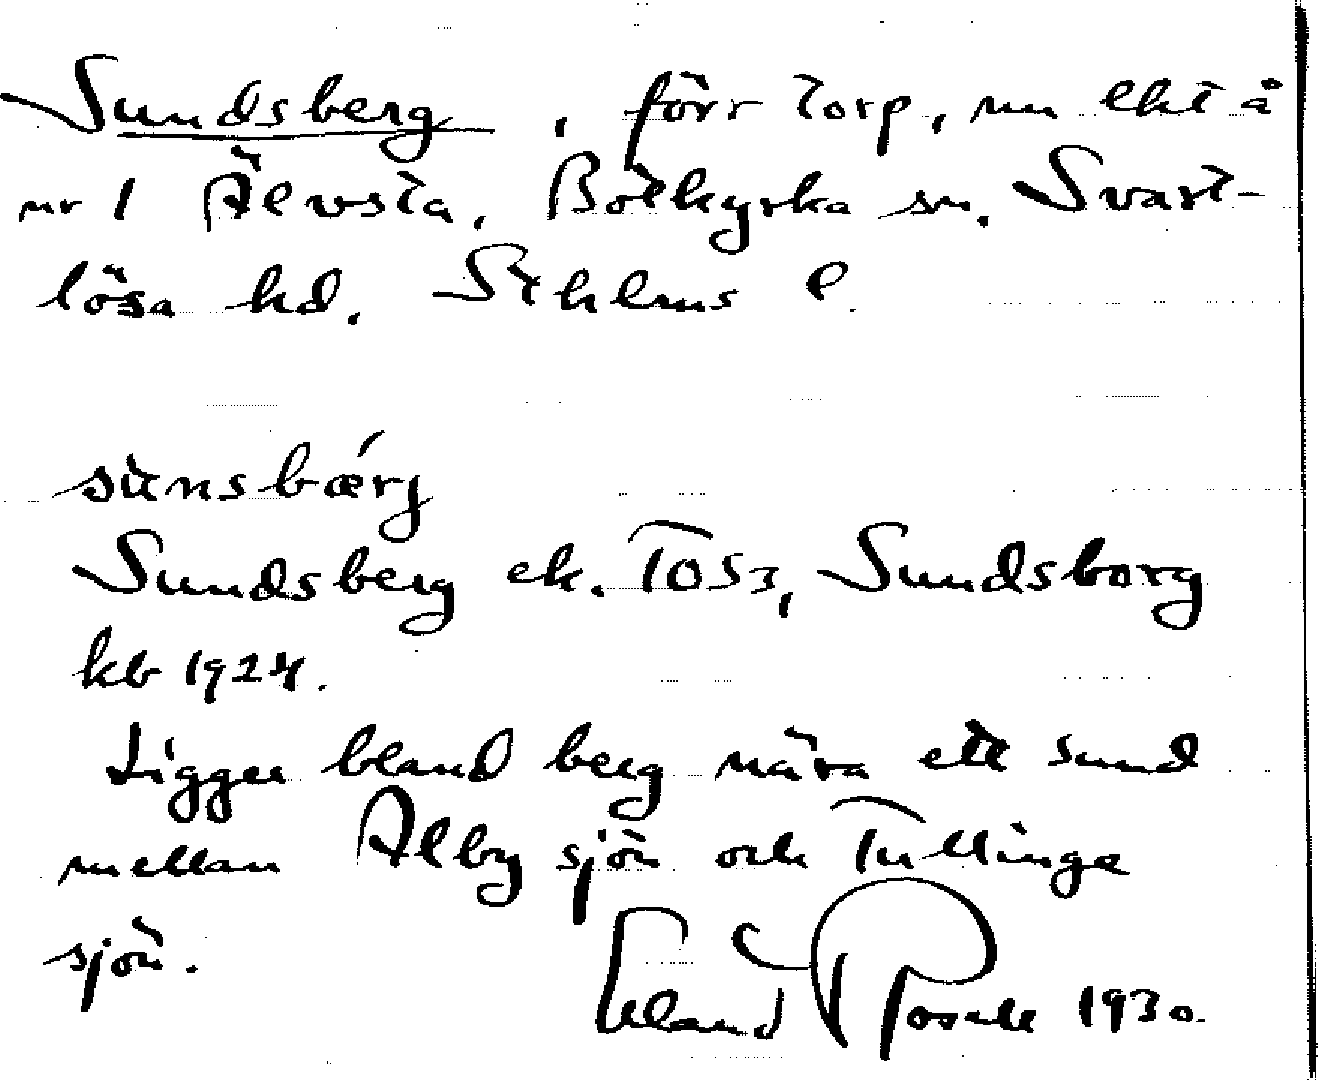 Sundsberg, förr torp, nu lht å
nr 1 Älvsta, Botkyrka sn. Svart-
lösa hd. Sthlms l.
sùnsbærj
Sundsberg ek. 1053, Sundsborg
kb 1924.
Ligger bland berg nära ett sund
mellan Alby sjön och Tullinge
sjön.
Erland Rosell 1930.